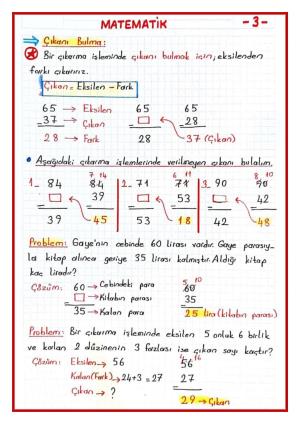 MATEMATİK
-3-
Çıkanı Bulma:
Bir çıkarma işleminde çıkanı bulmak için; eksilenden
farkı çıkarırız.
Çıkan = Eksilen - Fark
65 → Eksilen
- 37 → Çıkan
28 → Fark
65
-
28
65
- 28
37 (Çıkan)
Aşağıdaki çıkarma işlemlerinde verilmeyen çıkanı bulalım.
1_ 84
-
39
7 14
84
- 39
45
2_ 71
-
53
6 11
71
- 53
18
3_ 90
-
42
8 10
90
- 42
48
Problem: Gaye'nin cebinde 60 lirası vardır. Gaye parasıy-
la kitap alınca geriye 35 lirası kalmıştır. Aldığı kitap
kaç liradır?
Çözüm: 60 → Cebindeki para
- → Kitabın parası
35 → Kalan para
5 10
60
- 35
25 lira (kitabın parası)
Problem: Bir çıkarma işleminde eksilen 5 onluk 6 birlik
ve kalan 2 düzinenin 3 fazlası ise çıkan sayı kaçtır?
Çözüm: Eksilen → 56
Kalan (Fark) → 24+3 = 27
Çıkan → ?
4 16
56
- 27
29 → Çıkan